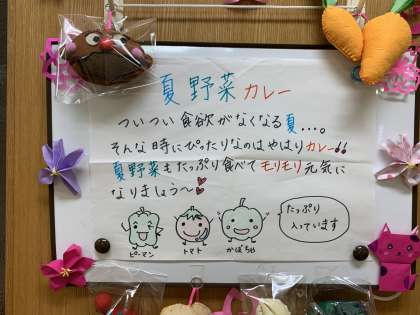 夏野菜カレー
ついつい食欲がなくなる夏…。
そんな時にぴったりなのはやはりカレー!!
夏野菜もたっぷり食べてモリモリ元気に
なりましょう〜
ピーマン
トマト
かぼちゃ
たっぷり
入っています